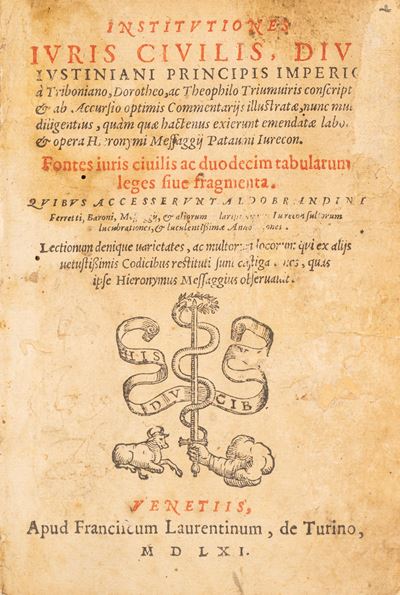 INSTITVTIONES
IVRIS CIVILIS, DIV
IVSTINIANI PRINCIPIS IMPERIO
à Triboniano, Dorotheo, ac Theophilo Triumuiris conscript
& ab Accursio optimis Commentarijs illustratæ, nunc mul
diligentius, quàm quæ hactenus exierunt emendatæ labo
& opera Hieronymi Messaggij Patauni Iurecon.
Fontes iuris ciuilis ac duodecim tabularum
leges siue fragmenta.
QVIBVS ACCESSERVNT ALDOBRANDINI
Ferretti, Baroni, & aliorum Iureconsultorum
lucubrationes, & luculentissimæ
Lectionum denique varietates, ac multorum locorum qui ex alijs
vetustissimis Codicibus restituti sunt quas
ipse Hieronymus Messaggius obseruauit.
HIS
DV CIB
VENETIIS,
Apud Franciscum Laurentinum, de Turino,
M D LXI.